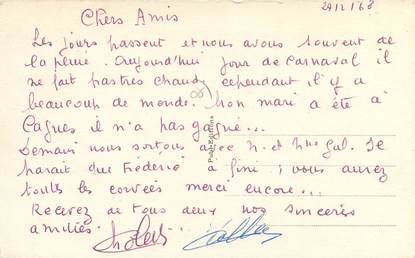 24/2/68
Chers Amis
Les jours passent et nous avons souvent de
la pluie. Aujourd'hui jour de Carnaval il
ne fait pas très chaud, cependant il y a
beaucoup de monde. Mon mari a été à
Cagnes il n'a pas gagné...
Demain nous sortons avec M. et Mme Gal. Il
parait que Frédéric a fini ; vous aurez
toutes les corvées merci encore...
Recevez de tous deux nos sincères
amitiés...